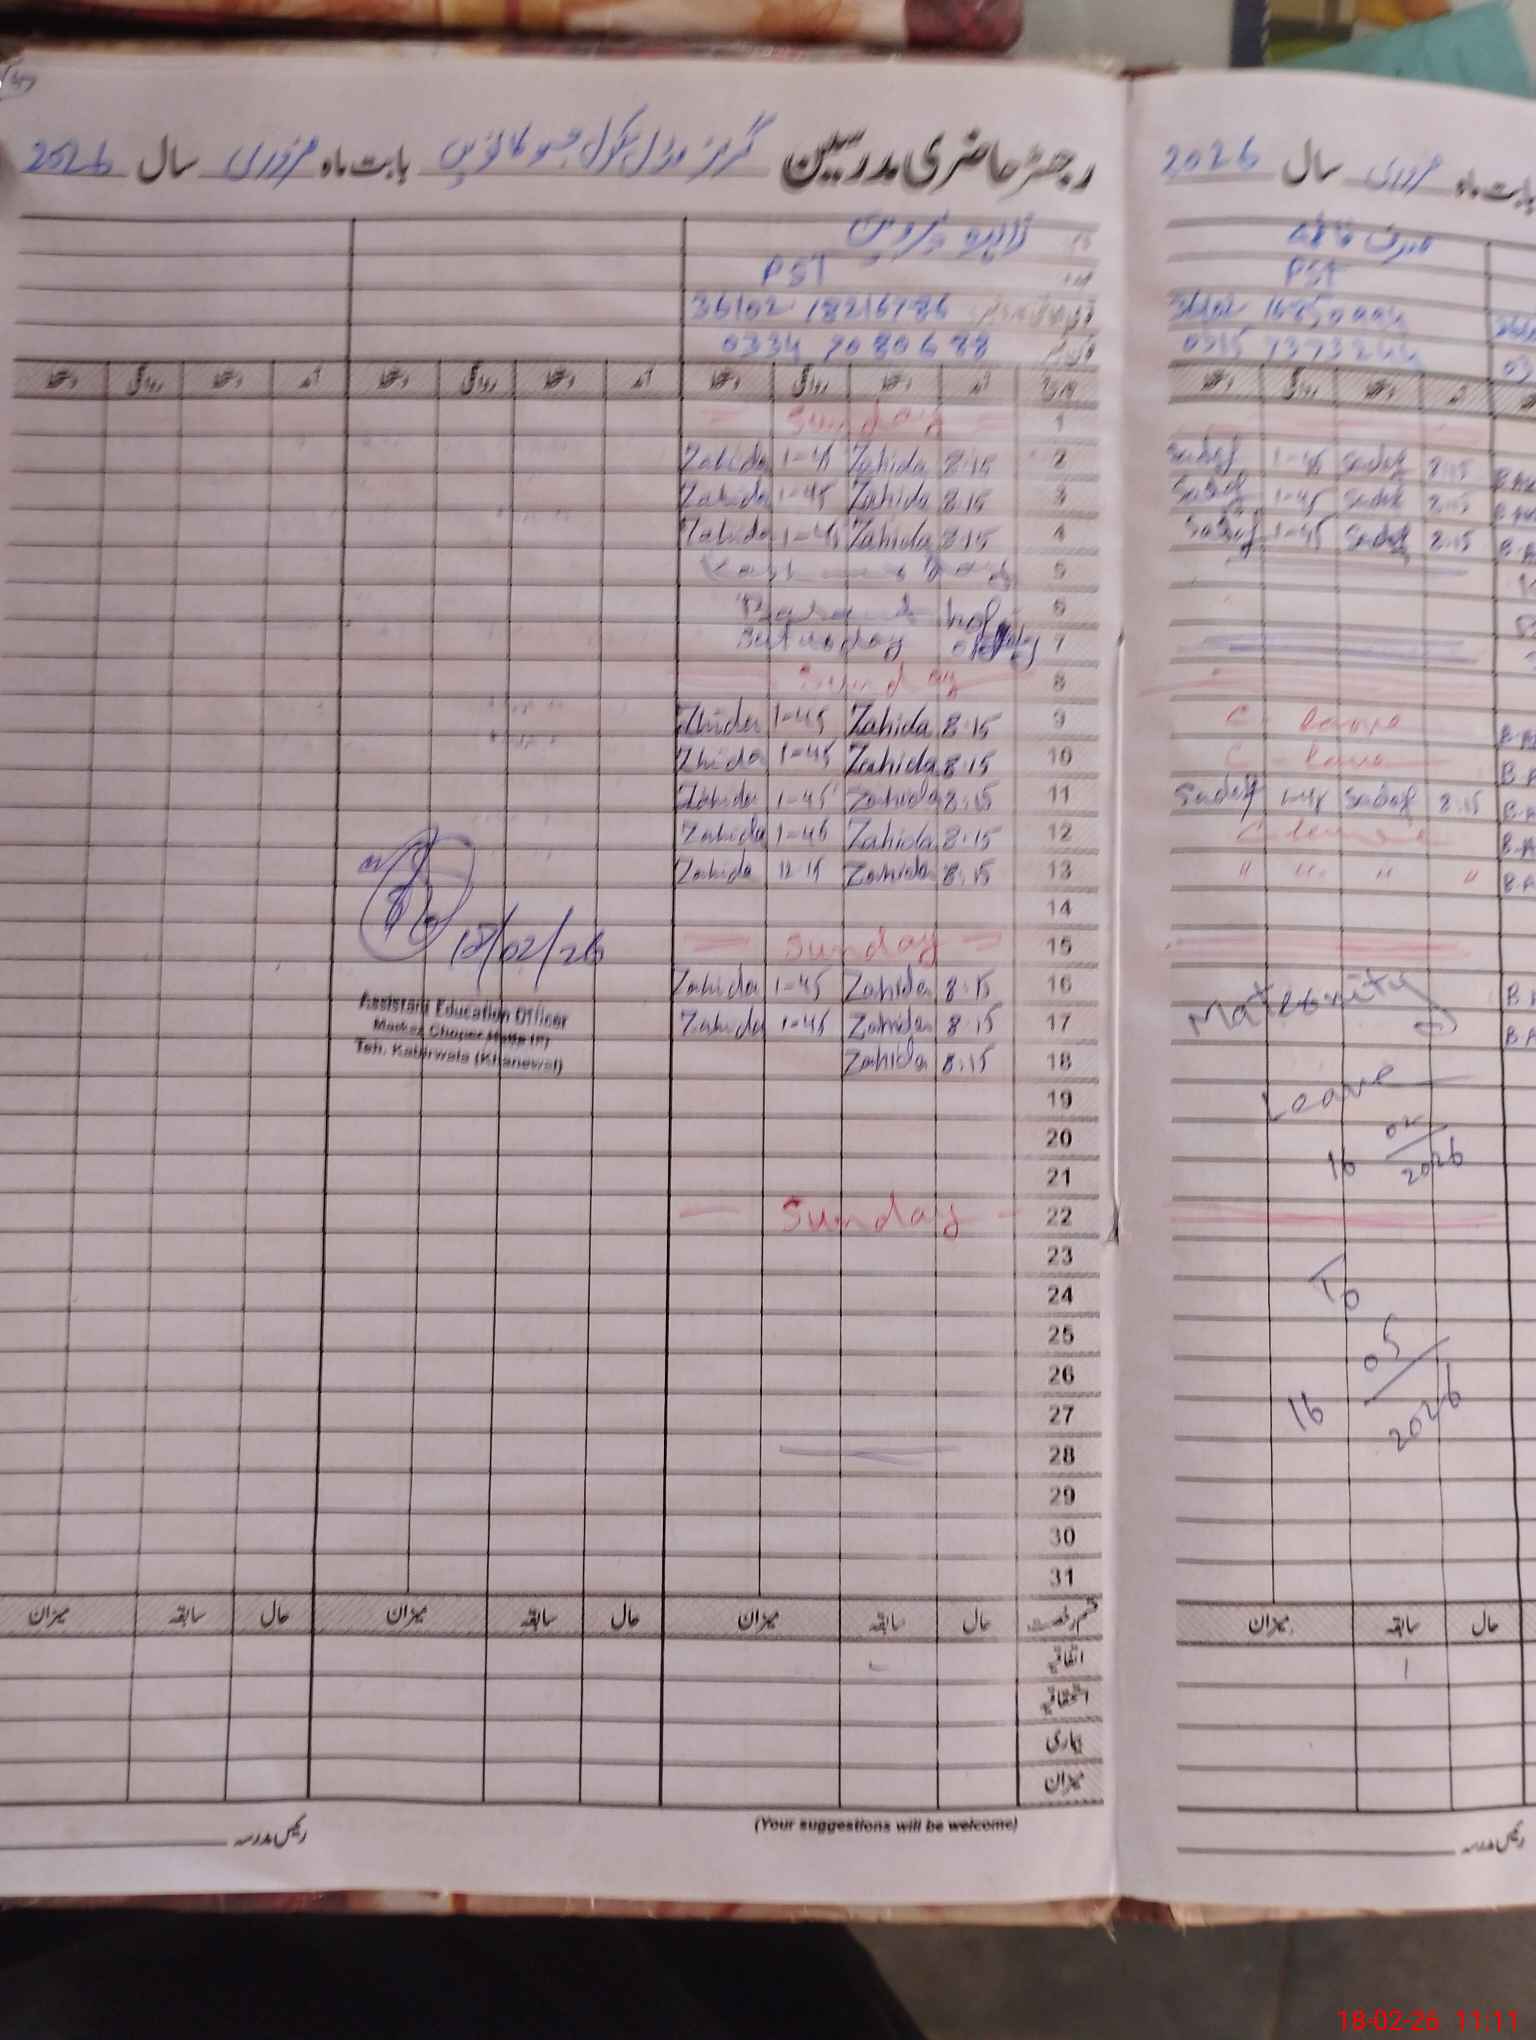 رجسٹر حاضری مدرسین گرلز مڈل سکول بابت ماہ فروری سال 2026
زاہدہ پروین
PST
36102 18216786
0334 7080688
تاریخ آمد دستخط روانگی دستخط آمد دستخط روانگی دستخط آمد دستخط روانگی دستخط
1 Sunday
2 8:15 Zahida 1-45 Zahida
3 8:15 Zahida 1-45 Zahida
4 8:15 Zahida 1-45 Zahida
5
6
7 Saturday
8 Sunday
9 8:15 Zahida 1-45 Zhida
10 8:15 Zahida 1-45 Zhida
11 8:15 Zahida 1-45 Zahida
12 8:15 Zahida 1-45 Zahida
13 8:15 Zahida 12-15 Zahida
14
15 Sunday
16 8:15 Zahida 1-45 Zahida
17 8:15 Zahida 1-45 Zahida
18 8:15 Zahida
19
20
21
22 Sunday
23
24
25
26
27
28
29
30
31
18/02/26
Assistant Education Officer
Teh. Kabirwala (Khanewal)
قسم رخصت حال سابقہ میزان حال سابقہ میزان حال سابقہ میزان
اتفاقیہ
استحقاقیہ
بیماری
میزان
(Your suggestions will be welcome)
رئیس مدرسہ
بابت ماہ فروری سال 2026
صدف
PST
36102
0315
آمد دستخط روانگی دستخط
8:15 Sadaf 1-45 Sadaf
8:15 Sadaf 1-45 Sadaf
8:15 Sadaf 1-45 Sadaf
C-leave
C-leave
8:15 Sadaf 1-45 Sadaf
C-leave
" " " "
Maternity
Leave
16 02/2026
To
16 05/2026
حال سابقہ میزان
1
رئیس مدرسہ
18-02-26 11:11